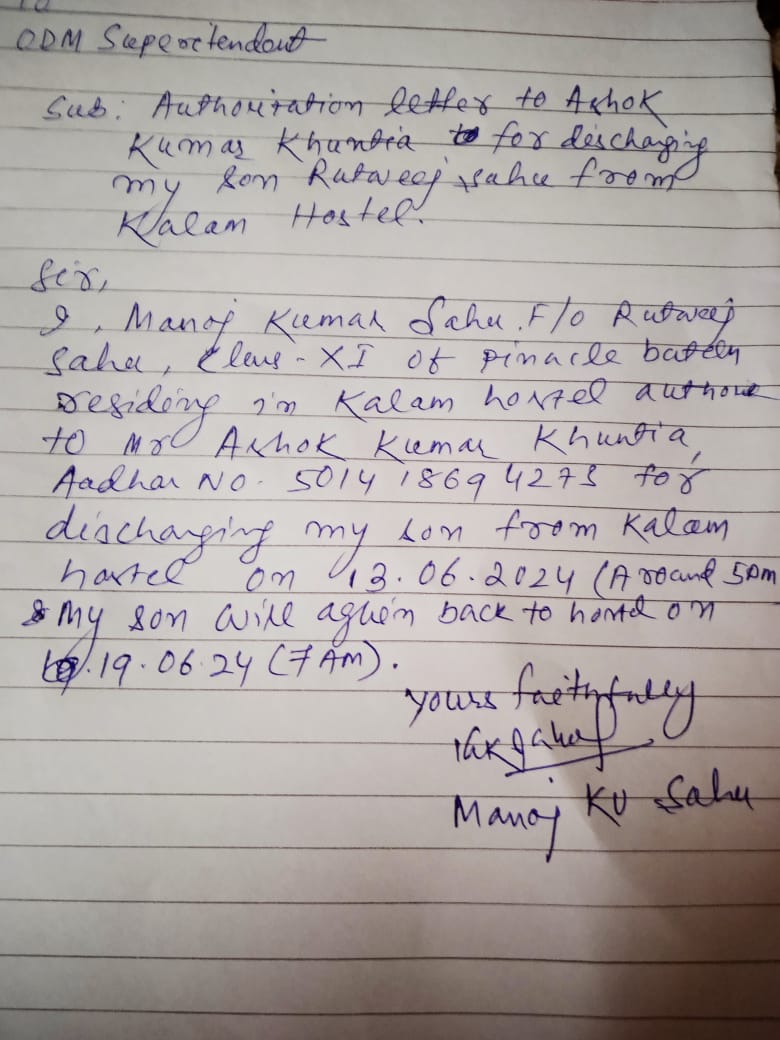 To
ODM Superctendout
Sub: Authoritation letter to Ashok
Kumar Khuntia for discharging
my son Rutweej sahu from
Kalam Hostel.
Sir,
I, Manoj Kumar Sahu. F/o Rutweej
Sahu, Class - XI of pinacle batch
residing in Kalam hostel authorie
to Mr Ashok Kumar Khuntia,
Aadhar No. 5014 1869 4273 for
discharging my son from Kalam
hostel on 13.06.2024 (Around 5pm
& My son will aguein back to hostel on
19.06.24 (7 AM).
yours faithfully
Manoj KU Sahu